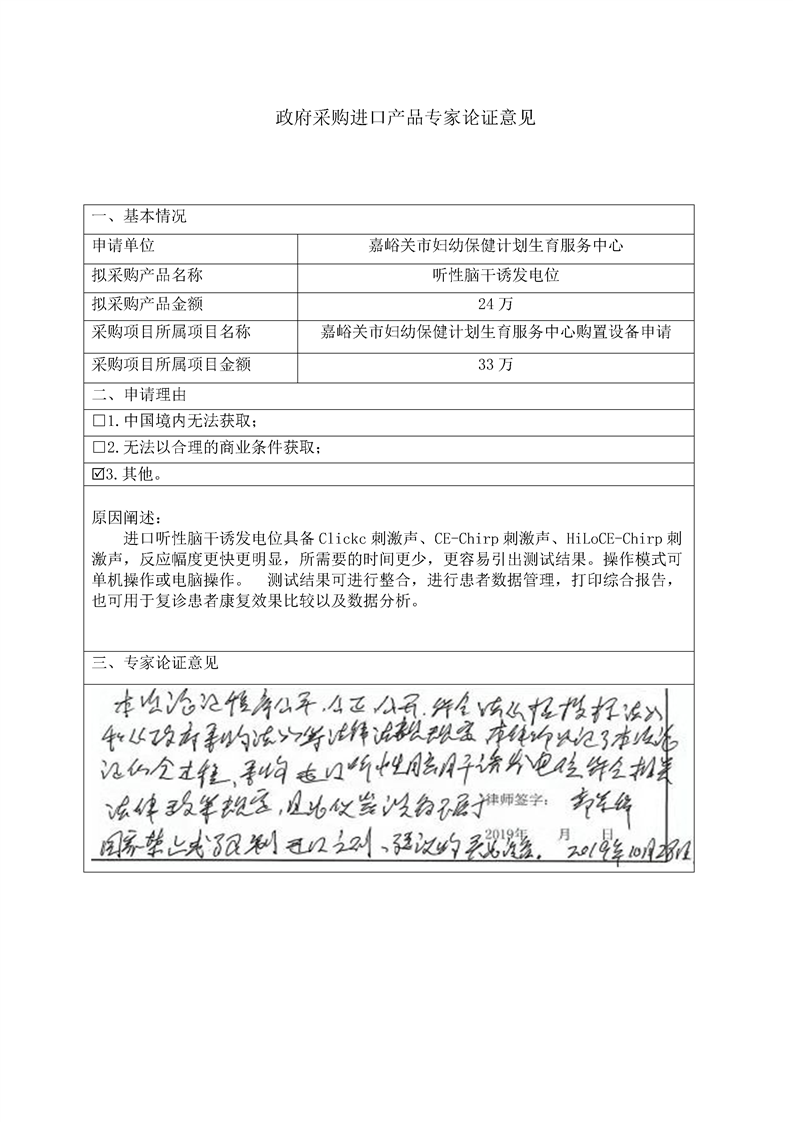 政府采购进口产品专家论证意见
一、基本情况
申请单位 嘉峪关市妇幼保健计划生育服务中心
拟采购产品名称 听性脑干诱发电位
拟采购产品金额 24 万
采购项目所属项目名称 嘉峪关市妇幼保健计划生育服务中心购置设备申请
采购项目所属项目金额 33 万
二、申请理由
□1.中国境内无法获取；
□2.无法以合理的商业条件获取；
☑3.其他。
原因阐述：
进口听性脑干诱发电位具备 Clickc 刺激声、CE-Chirp 刺激声、HiLoCE-Chirp 刺
激声，反应幅度更快更明显，所需要的时间更少，更容易引出测试结果。操作模式可
单机操作或电脑操作。 测试结果可进行整合，进行患者数据管理，打印综合报告，
也可用于复诊患者康复效果比较以及数据分析。
三、专家论证意见
本次论证程序公开、公正、公开，符合《招投标法》
和《政府采购法》等法律法规规定，本律师见证了本次论
证的全过程，采购进口听性脑干诱发电位符合相关
法律政策规定，且此仪器设备不属于
律师签字：
国家禁止或限制进口之列，
2019年 月 日
2019年10月28日